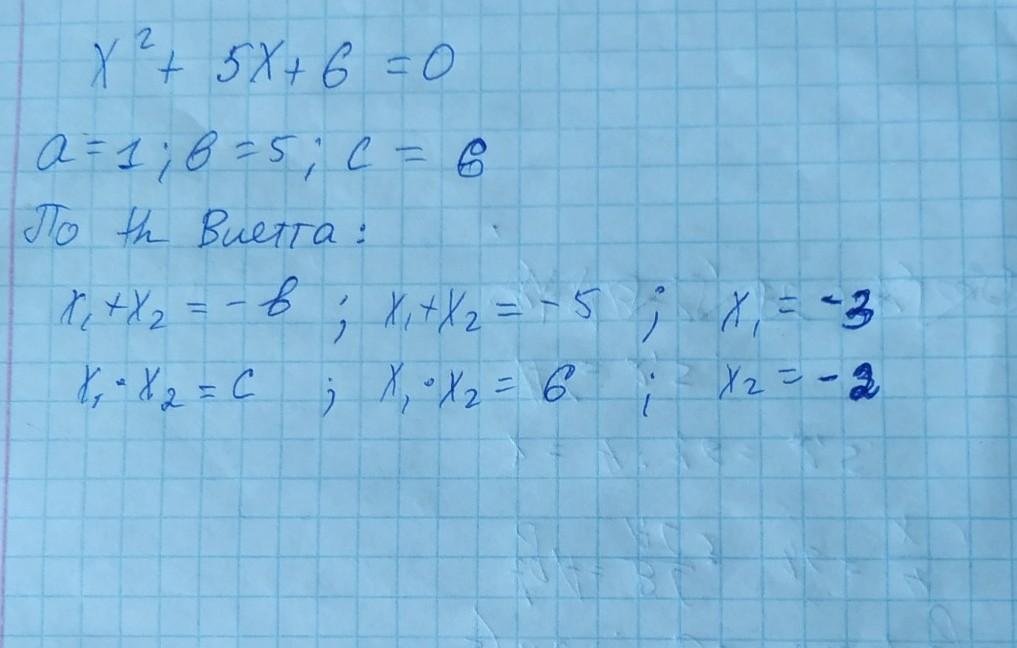 x² + 5x + 6 = 0
a = 1 ; b = 5 ; c = 6
По th Виетта :
x₁ + x₂ = - b ; x₁ + x₂ = - 5 ; x₁ = - 3
x₁ · x₂ = c ; x₁ · x₂ = 6 ; x₂ = - 2